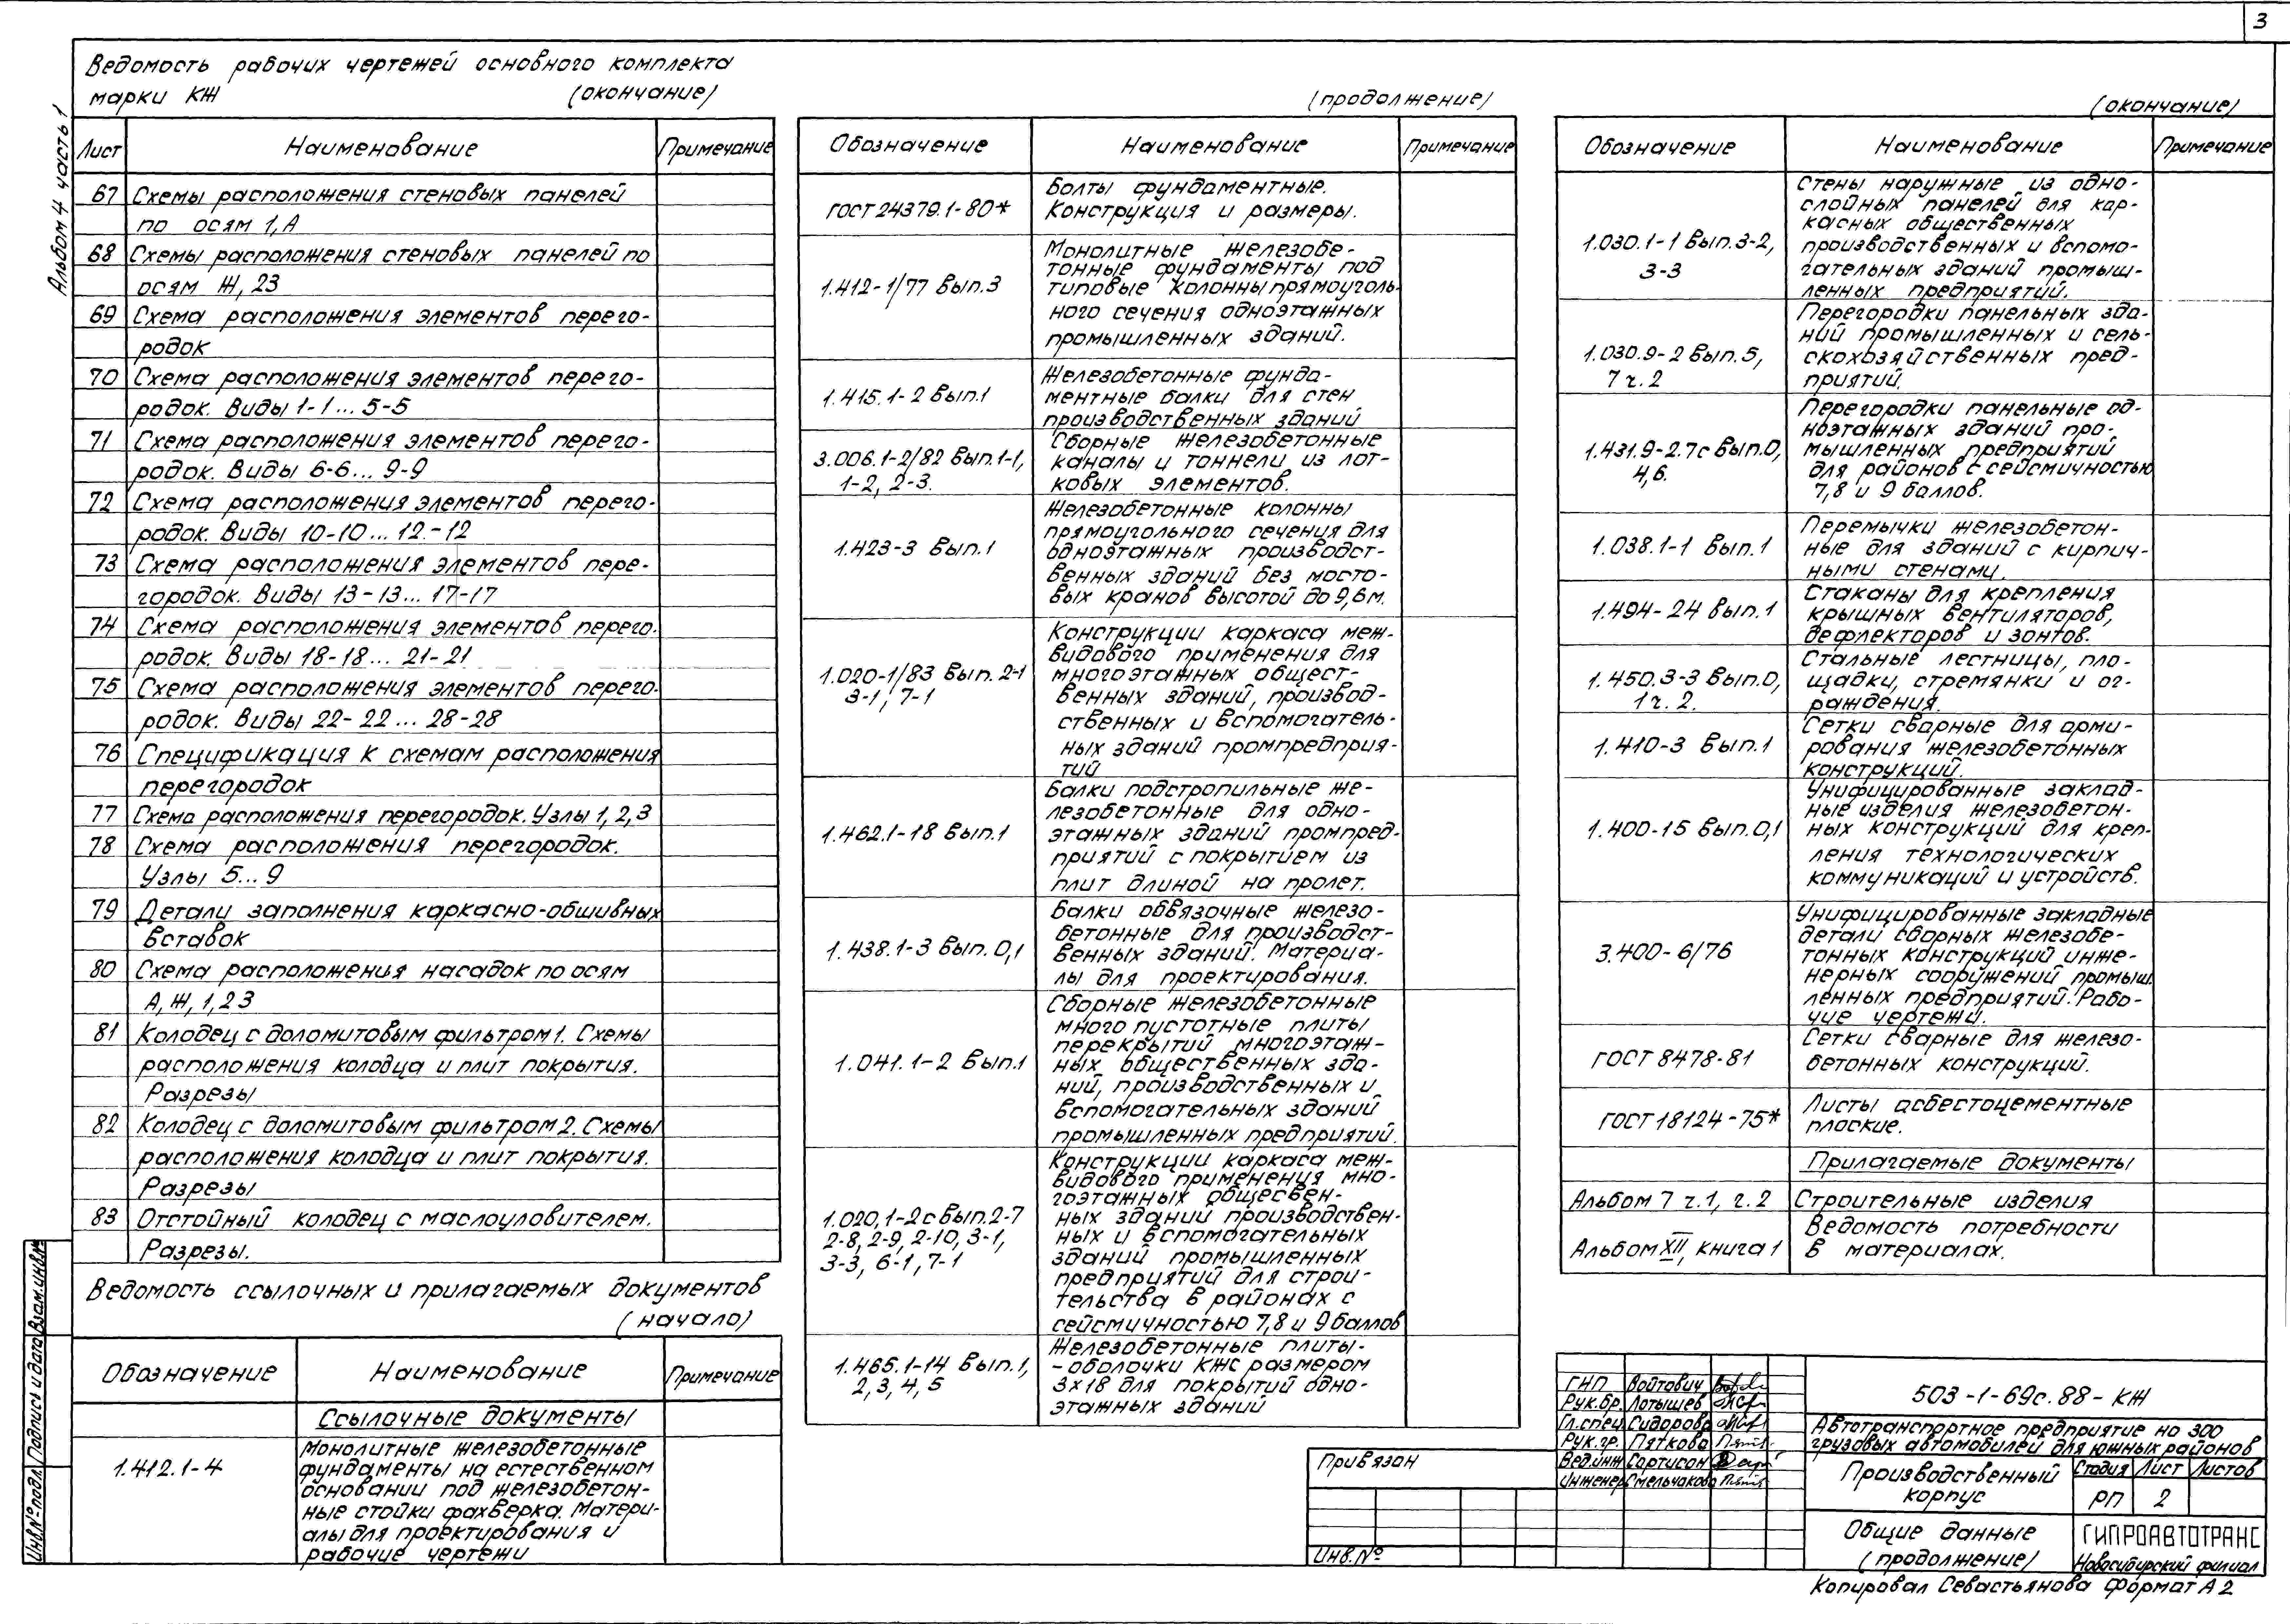 3
Альбом 4 часть 1
Ведомость рабочих чертежей основного комплекта
марки КЖ (окончание)
Лист Наименование Примечание
67 Схемы расположения стеновых панелей
по осям 1, А
68 Схемы расположения стеновых панелей по
осям Ж, 23
69 Схема расположения элементов перего-
родок
70 Схема расположения элементов перего-
родок. Виды 1-1... 5-5
71 Схема расположения элементов перего-
родок. Виды 6-6... 9-9
72 Схема расположения элементов перего-
родок. Виды 10-10... 12-12
73 Схема расположения элементов пере-
городок. Виды 13-13... 17-17
74 Схема расположения элементов перего-
родок. Виды 18-18... 21-21
75 Схема расположения элементов перего-
родок. Виды 22-22... 28-28
76 Спецификация к схемам расположения
перегородок
77 Схема расположения перегородок. Узлы 1, 2, 3
78 Схема расположения перегородок.
Узлы 5... 9
79 Детали заполнения каркасно-обшивных
вставок
80 Схема расположения насадок по осям
А, Ж, 1, 23
81 Колодец с доломитовым фильтром 1. Схемы
расположения колодца и плит покрытия.
Разрезы
82 Колодец с доломитовым фильтром 2. Схемы
расположения колодца и плит покрытия.
Разрезы
83 Отстойный колодец с маслоуловителем.
Разрезы.
Ведомость ссылочных и прилагаемых документов
(начало)
Обозначение Наименование Примечание
Ссылочные документы
1.412.1-4 Монолитные железобетонные
фундаменты на естественном
основании под железобетон-
ные стойки фахверка. Матери-
алы для проектирования и
рабочие чертежи
(продолжение)
Обозначение Наименование Примечание
ГОСТ 24379.1-80* Болты фундаментные.
Конструкция и размеры.
1.412-1/77 Вып.3 Монолитные железобе-
тонные фундаменты под
типовые колонны прямоуголь-
ного сечения одноэтажных
промышленных зданий.
1.415.1-2 Вып.1 Железобетонные фунда-
ментные балки для стен
производственных зданий
3.006.1-2/82 Вып.1-1,
1-2, 2-3.
Сборные железобетонные
каналы и тоннели из лот-
ковых элементов.
1.423-3 Вып.1 Железобетонные колонны
прямоугольного сечения для
одноэтажных производст-
венных зданий без мосто-
вых кранов высотой до 9,6 м.
1.020-1/83 Вып. 2-1
3-1, 7-1
Конструкции каркаса меж-
видового применения для
многоэтажных общест-
венных зданий, производ-
ственных и вспомогатель-
ных зданий промпредприя-
тий
1.462.1-18 Вып.1 Балки подстропильные же-
лезобетонные для одно-
этажных зданий промпред-
приятий с покрытием из
плит длиной на пролет.
1.438.1-3 Вып. 0,1 Балки обвязочные железо-
бетонные для производст-
венных зданий. Материа-
лы для проектирования.
1.041.1-2 Вып.1 Сборные железобетонные
многопустотные плиты
перекрытий многоэтаж-
ных общественных зда-
ний, производственных и
вспомогательных зданий
промышленных предприятий.
1.020.1-2с Вып.2-7
2-8, 2-9, 2-10, 3-1,
3-3, 6-1, 7-1
Конструкции каркаса меж-
видового применения мно-
гоэтажных обществен-
ных зданий производствен-
ных и вспомогательных
зданий промышленных
предприятий для строи-
тельства в районах с
сейсмичностью 7,8 и 9 баллов
1.465.1-14 Вып.1,
2, 3, 4, 5
Железобетонные плиты-
-оболочки КЖС размером
3×18 для покрытий одно-
этажных зданий
(окончание)
Обозначение Наименование Примечание
1.030.1-1 Вып.3-2,
3-3
Стены наружные из одно-
слойных панелей для кар-
касных общественных
производственных и вспомо-
гательных зданий промыш-
ленных предприятий.
1.030.9-2 Вып.5,
7 ч. 2
Перегородки панельных зда-
ний промышленных и сель-
скохозяйственных пред-
приятий.
1.431.9-2.7с Вып.0,
4,6.
Перегородки панельные од-
ноэтажных зданий про-
мышленных предприятий
для районов с сейсмичностью
7,8 и 9 баллов.
1.038.1-1 Вып.1 Перемычки железобетон-
ные для зданий с кирпич-
ными стенами.
1.494-24 Вып.1 Стаканы для крепления
крышных вентиляторов,
дефлекторов и зонтов.
1.450.3-3 Вып.0,
1 ч. 2.
Стальные лестницы, пло-
щадки, стремянки и ог-
раждения.
1.410-3 Вып.1 Сетки сварные для арми-
рования железобетонных
конструкций.
1.400-15 Вып.0,1 Унифицированные заклад-
ные изделия железобетон-
ных конструкций для креп-
ления технологических
коммуникаций и устройств.
3.400-6/76 Унифицированные закладные
детали сборных железобе-
тонных конструкций инже-
нерных сооружений промыш-
ленных предприятий. Рабо-
чие чертежи.
ГОСТ 8478-81 Сетки сварные для железо-
бетонных конструкций.
ГОСТ 18124-75* Листы асбестоцементные
плоские.
Прилагаемые документы
Альбом 7 ч.1, ч.2 Строительные изделия
Альбом XII, книга 1 Ведомость потребности
в материалах.
Привязан
Инв.№
ГИП Войтович
Рук.бр. Лотышев
Гл.спец Сидорова
Рук.гр. Пяткова
Вед.инж Сартисон
Инженер Смельчакова
503-1-69с.88-КЖ
Автотранспортное предприятие на 300
грузовых автомобилей для южных районов
Производственный
корпус
Стадия Лист Листов
РП 2
Общие данные
(продолжение)
ГИПРОАВТОТРАНС
Новосибирский филиал
Копировал Севастьянова Формат А2
Инв.№ подл. Подпись и дата Взам.инв.№